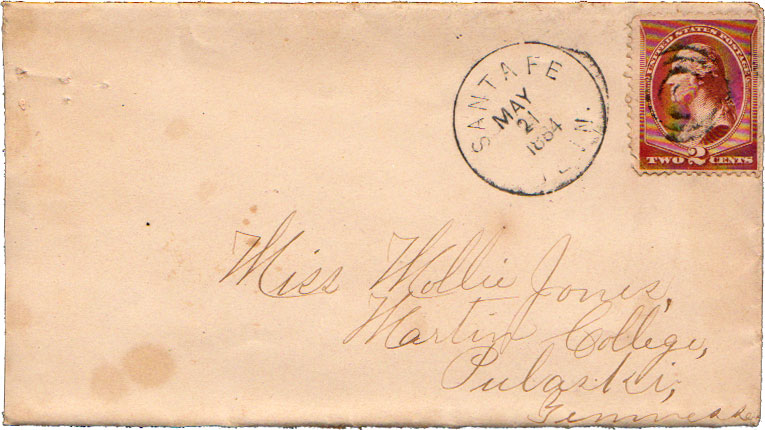 SANTA FE
MAY
21
1884
TENN.
UNITED STATES POSTAGE
TWO 2 CENTS
Miss Mollie Jones,
Martin College,
Pulaski,
Tennessee